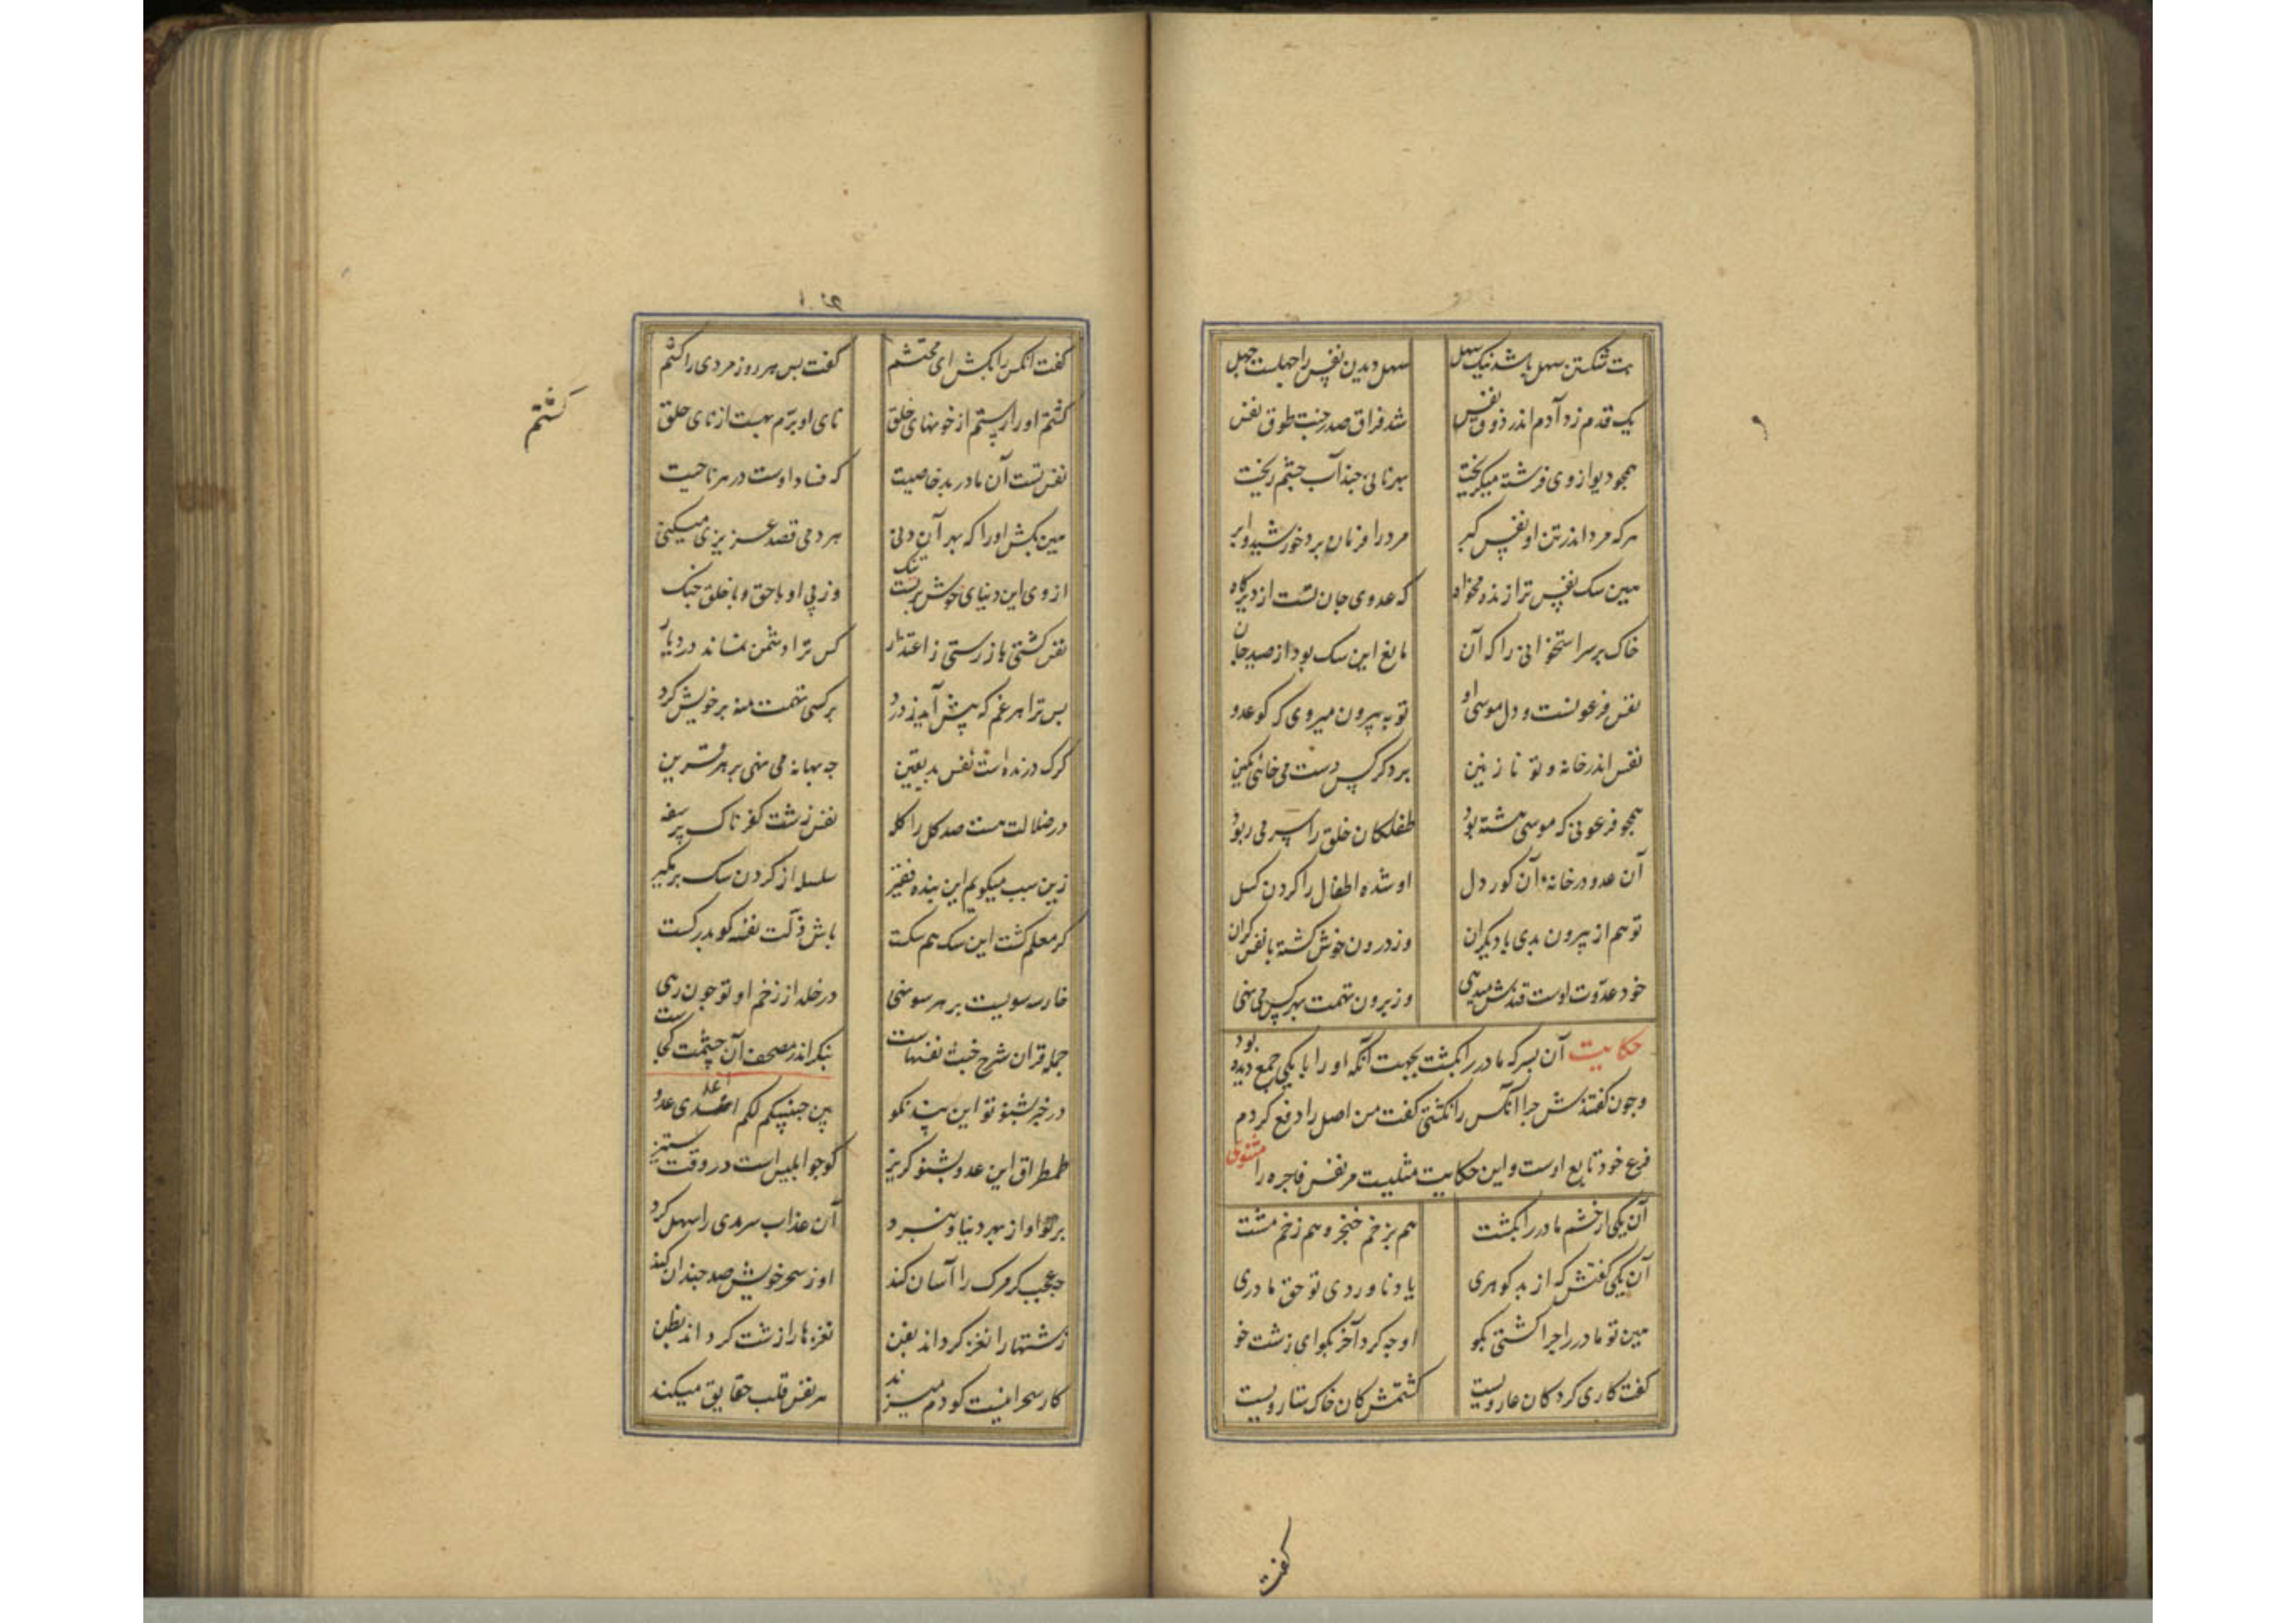 بت شکستن سهل باشد نیک سهل سهل دیدن نفس را جهلست جهل
یک قدم زد آدم اندر ذوق نفس شد فراق صدر جنت طوق نفس
همچو دیو از وی فرشته میگریخت بهر نانی چند آب چشم ریخت
هرکه مرد اندر تن او نفس گبر مر ورا فرمان برد خورشید و ابر
هین سک نفس ترا زنده مخواه که عدوی جان تست از دیرگاه
خاک بر سر استخوانی را که آن مانع این سک بود از صید جان
نفس فرعونست و دل موسی او تو به بیرون میروی که کو عدو
نفس اندر خانه و تو نازنین بر دگر کس دست می خائی بکین
همچو فرعونی که موسی هشته بود طفلکان خلق را سر می ربود
آن عدو در خانه آن کور دل او شده اطفال را گردن کسل
تو هم از بیرون بدی با دیگران وز درون خوش گشته با نفس گران
خود عدوت اوست قندش میدهی وز برون تهمت بهر کس می نهی
حکایت آن پسر که مادر را بکشت بجهت آنکه او را با یکی جمع دیده بود
و چون گفتندش چرا آنکس را نکشتی گفت من اصل را دفع کردم
فرع خود تابع اوست و این حکایت مثلیست مر نفس فاجره را مثنوی
آن یکی از خشم مادر را بکشت هم بزخم خنجر و هم زخم مشت
آن یکی گفتش که از بد گوهری یاد ناوردی تو حق مادری
هین تو مادر را چرا کشتی بگو او چه کرد آخر بگو ای زشت خو
گفت کاری کرد کان عار ویست کشتمش کان خاک ستار ویست
گفت
گفت آنکس را بکش ای محتشم گفت پس هر روز مردی را کشم
کشتم او را رستم از خونهای خلق نای او برم بهست از نای خلق
کشتم
نفس تست آن مادر بد خاصیت که فساد اوست در هر ناحیت
هین بکش او را که بهر آن دنی هر دمی قصد عزیزی میکنی
از وی این دنیای خوش بر تست تنگ وز پی او با حق و با خلق جنک
نفس کشتی باز رستی ز اعتذار کس ترا دشمن نماند در دیار
پس ترا هر غم که پیش آید ز درد بر کسی تهمت منه بر خویش گرد
گرک درنده است نفس بد یقین چه بهانه می نهی بر هر قرین
در ضلالت هست صد کل را کله نفس زشت کفرناک پر سفه
زین سبب میگویم این بنده فقیر سلسله از گردن سک برمگیر
گر معلم گشت این سک هم سکست باش ذلت نفسه کو بدرگست
در خلد از زخم او تو چون رهی
جمله قران شرح خبث نفسهاست بنگر اندر مصحف آن چشمت کجاست
در خبر بشنو تو این پند نکو بین جنبیکم لکم اعدی عدو
طمطراق این عدو بشنو گریز کو چو ابلیس است در وقت ستیز
بر تو او از بهر دنیا و نبرد آن عذاب سرمدی را سهل کرد
چه عجب گر مرک را آسان کند او ز سحر خویش صد چندان کند
زشتها را نغز گرداند بفن نغزها را زشت گرداند بظن
کار سحر اینست کو دم میزند هر نفس قلب حقایق میکند